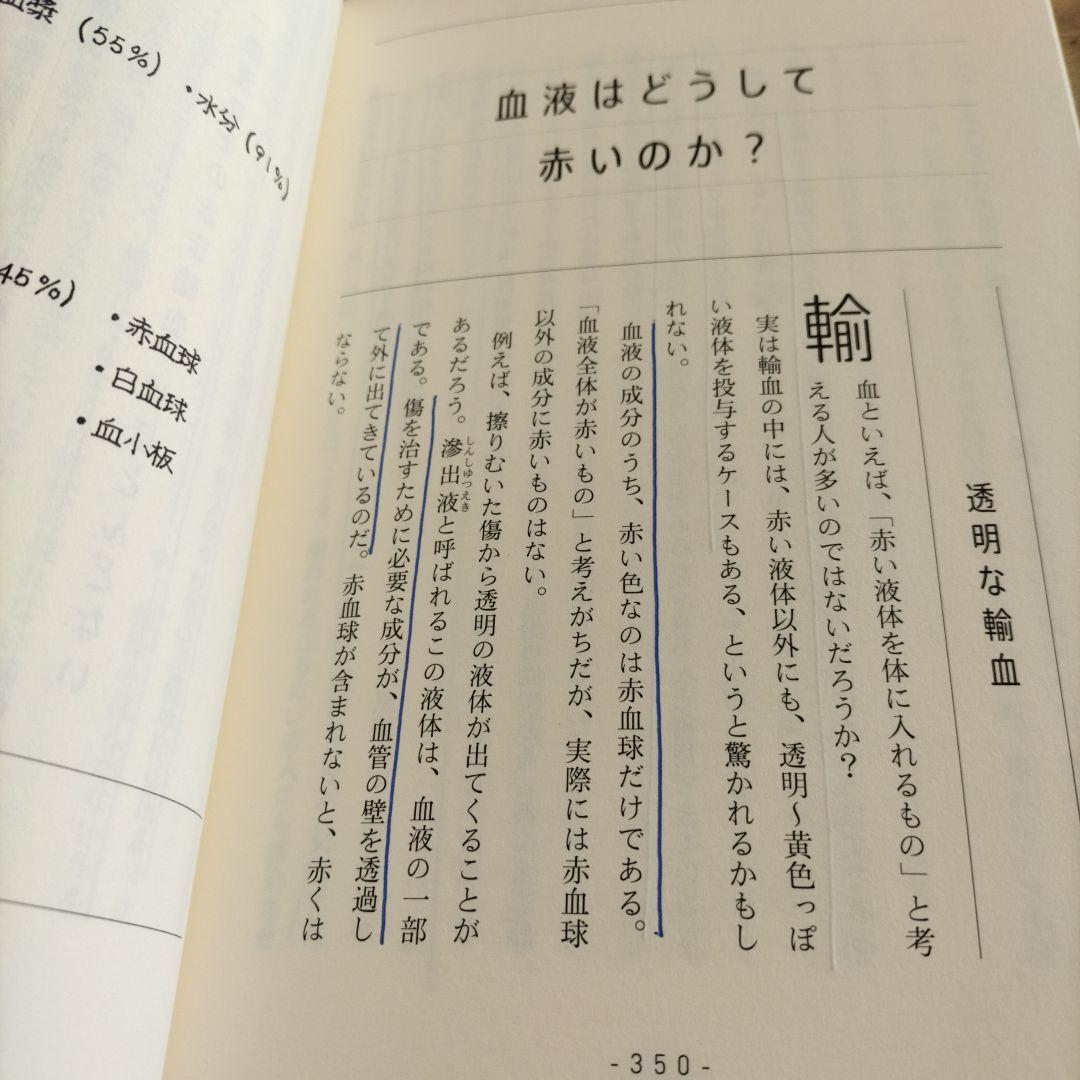 血漿(55%)
・水分(91%)
45%)
・赤血球
・白血球
・血小板
血液はどうして
赤いのか?
透明な輸血
輸血といえば、「赤い液体を体に入れるもの」と考
える人が多いのではないだろうか?
実は輸血の中には、赤い液体以外にも、透明~黄色っぽ
い液体を投与するケースもある、というと驚かれるかもし
れない。
血液の成分のうち、赤い色なのは赤血球だけである。
「血液全体が赤いもの」と考えがちだが、実際には赤血球
以外の成分に赤いものはない。
例えば、擦りむいた傷から透明の液体が出てくることが
あるだろう。滲出液しんしゅつえきと呼ばれるこの液体は、血液の一部
である。傷を治すために必要な成分が、血管の壁を透過し
て外に出てきているのだ。赤血球が含まれないと、赤くは
ならない。
-350-